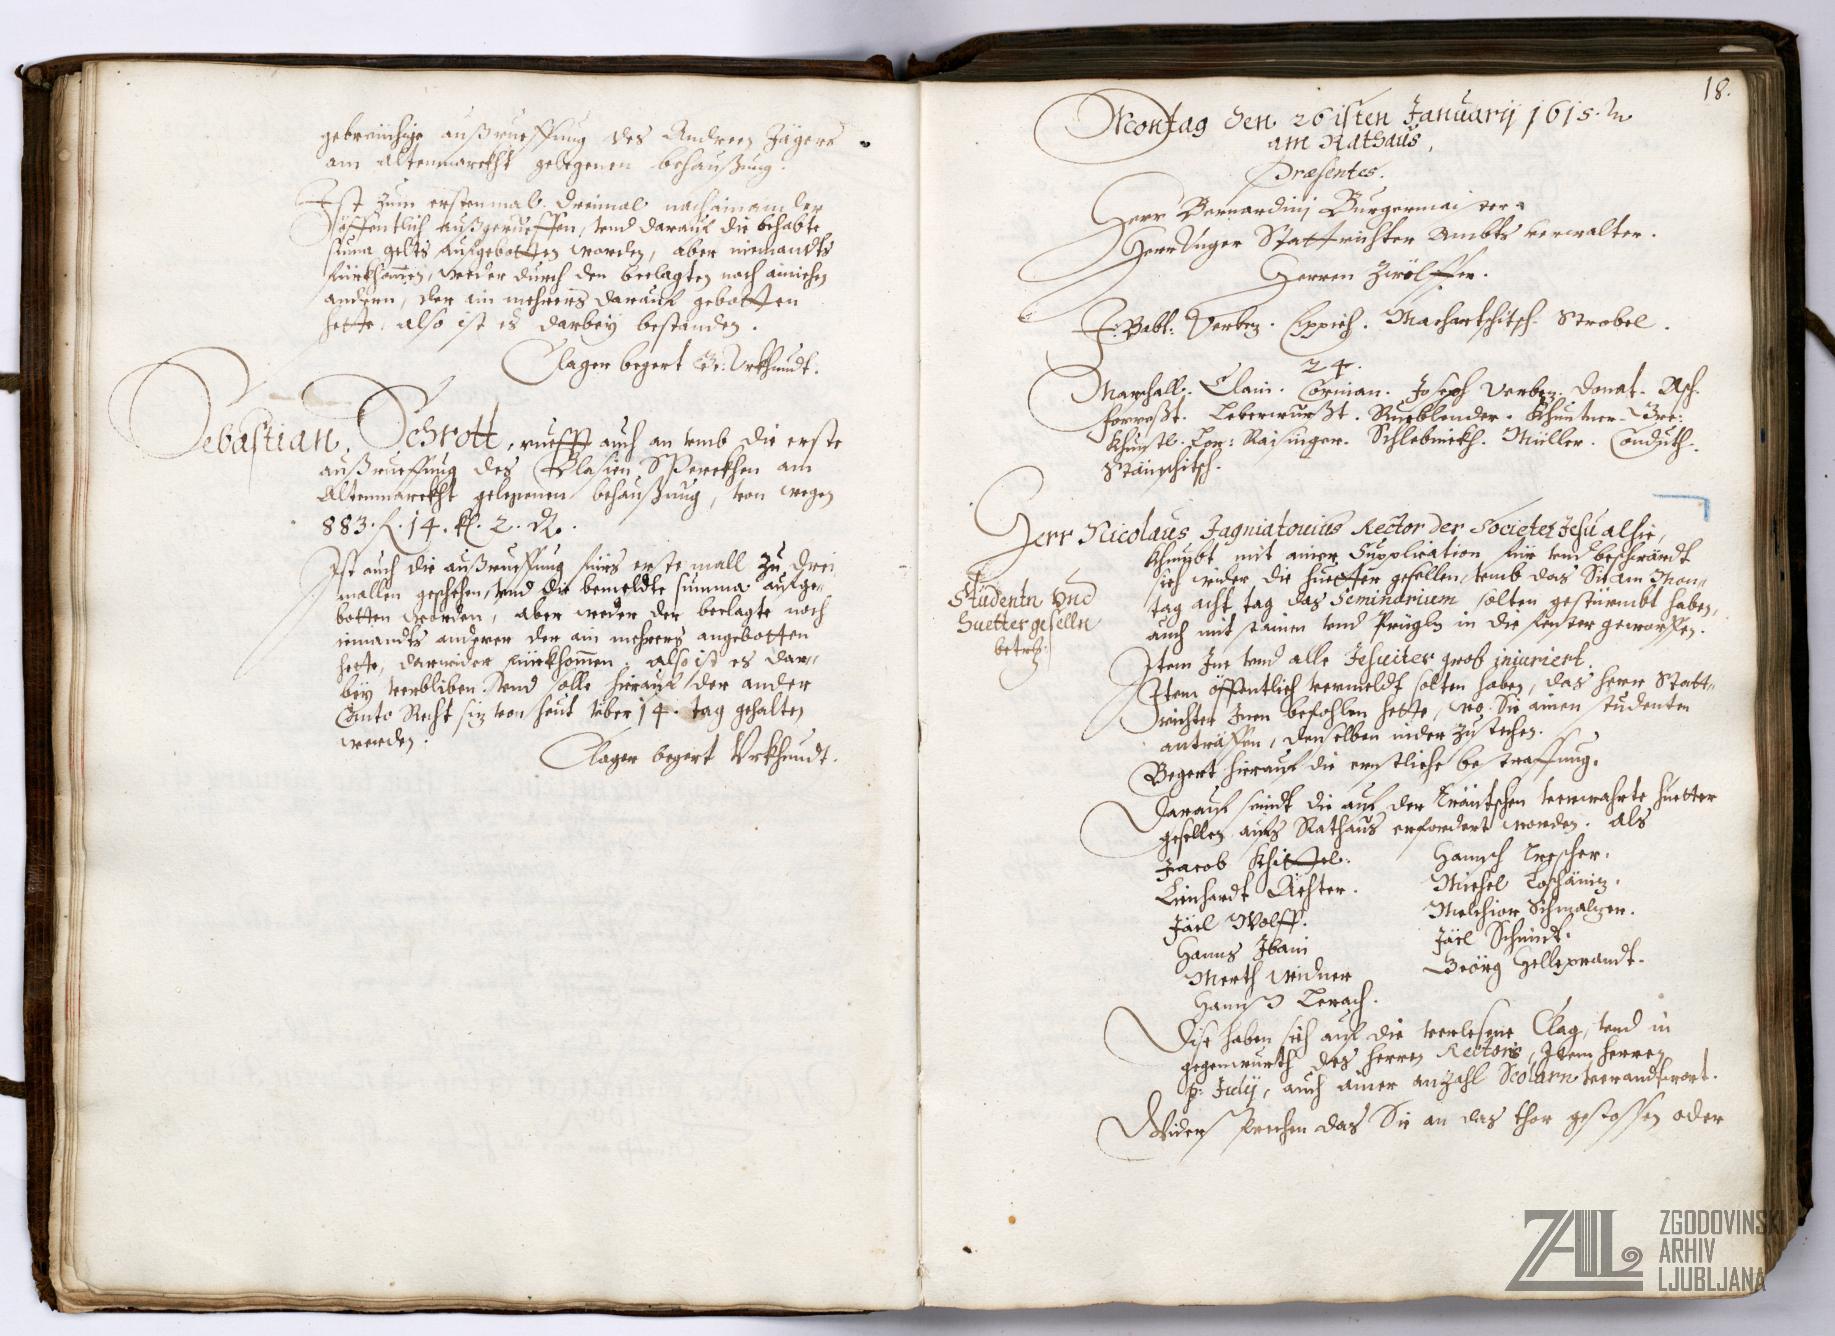 gebreüchige außrueffung des Andreen Jägers
am Altenmarckht gelegenen behaußung.
Ist zum erstenmal dreimal nacheinander
öffentlich außgerueffen, vnd darauf die behabte
suma gelts aufgebotten worden, aber niemandts
fürkhomen, weder durch den beclagten noch ainichen
andern, der ain mehrers darauf gebotten
hette, also ist es darbey bestanden.
Clager begert Vrkhundt.
Sebastian Schrott, ruefft auch an vmb die erste
außrueffung des Blasien Sperekhen am
Altenmarckht gelegenen behaußung, von wegen
883. f. 14. kr. 2. d.
Ist auch die außrueffung fürs erste mall zu drei
mallen geschehen, vnd die bemeldte summa aufge-
botten worden, aber weder der beclagte noch
iemandts anderer der ain mehrers angebotten
hette, darwider fürkhommen. also ist es dar-
bey verbliben. Vnd solle hierauf der ander
Ganto Recht siz von heut über 14. tag gehalten
werden.
Clager begert Vrkhundt.
18.
Montag den 26isten January 1615.
am Rathaus,
Præsentes.
Herr Bernardinj Burgermaister
Herr Vnger Stattrichter Ambts verwalter.
Herren Zwölffer.
Verbez. Cppich. Machartschitsch. Strobel.
24.
Marchall. Clain. Corman. Joseph Verbez. Donat. Asch.
Forresst. Leberwurßt. Rueblender. Khuntner.
Khunstl. Raisinger. Schlebnickh. Müller. Conduth.
Stänschitsch.
Herr Nicolaus Jagniatouius Rector der Societet Jesu alhie,
khumbt mit ainer Supplication für vnd beschwärdt
sich wider die huetter gesellen, vmb das Sie am Mon-
tag acht tag das Seminarium solten gestürmbt haben,
auch mit stainen vnd Prügln in die fenster geworffen.
Studentn vnd
Huettergeselln
betr.
Item Ine vnd alle Jesuiter grob iniuriert.
Item öffentlich vermeldt solten haben, das herr Statt-
richter Inen befohlen hette, wo Sie ainen studenten
anträffen, denselben nider zu stechen.
Begert hierauf die ernstliche bestraffung.
Darauf seindt die auf der Träntschen verwahrte huetter
gesellen aufs Rathaus erfordert worden. als
Jacob Khittel.
Leinhardt Achter.
Jäcl Wolff.
Hanns Ibani
Merth Weidner
Hannß Lerach.
Hannsch Trescher.
Michel Loschäniz.
Melchior Schmalzer.
Jäcl Schmidt.
Geörg Helleprandt.
Dise haben sich auf die verlesene Clag, vnd in
gegenwurth des herren Rectoris, Item herren
p: Judij, auch ainer anzahl Scolarn verandtwort.
Widersprechen das Sie an das thor gestossen oder
ZAL
ZGODOVINSKI
ARHIV
LJUBLJANA